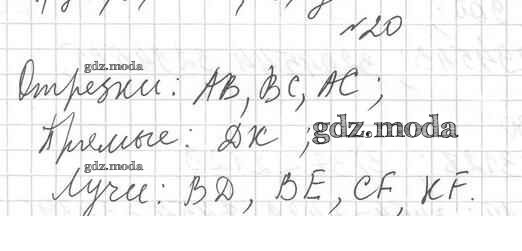 №20
gdz.moda
Отрезки: AB, BC, AC;
Прямые: DK;
gdz.moda
gdz.moda
Лучи: BD, BE, CF, KF.